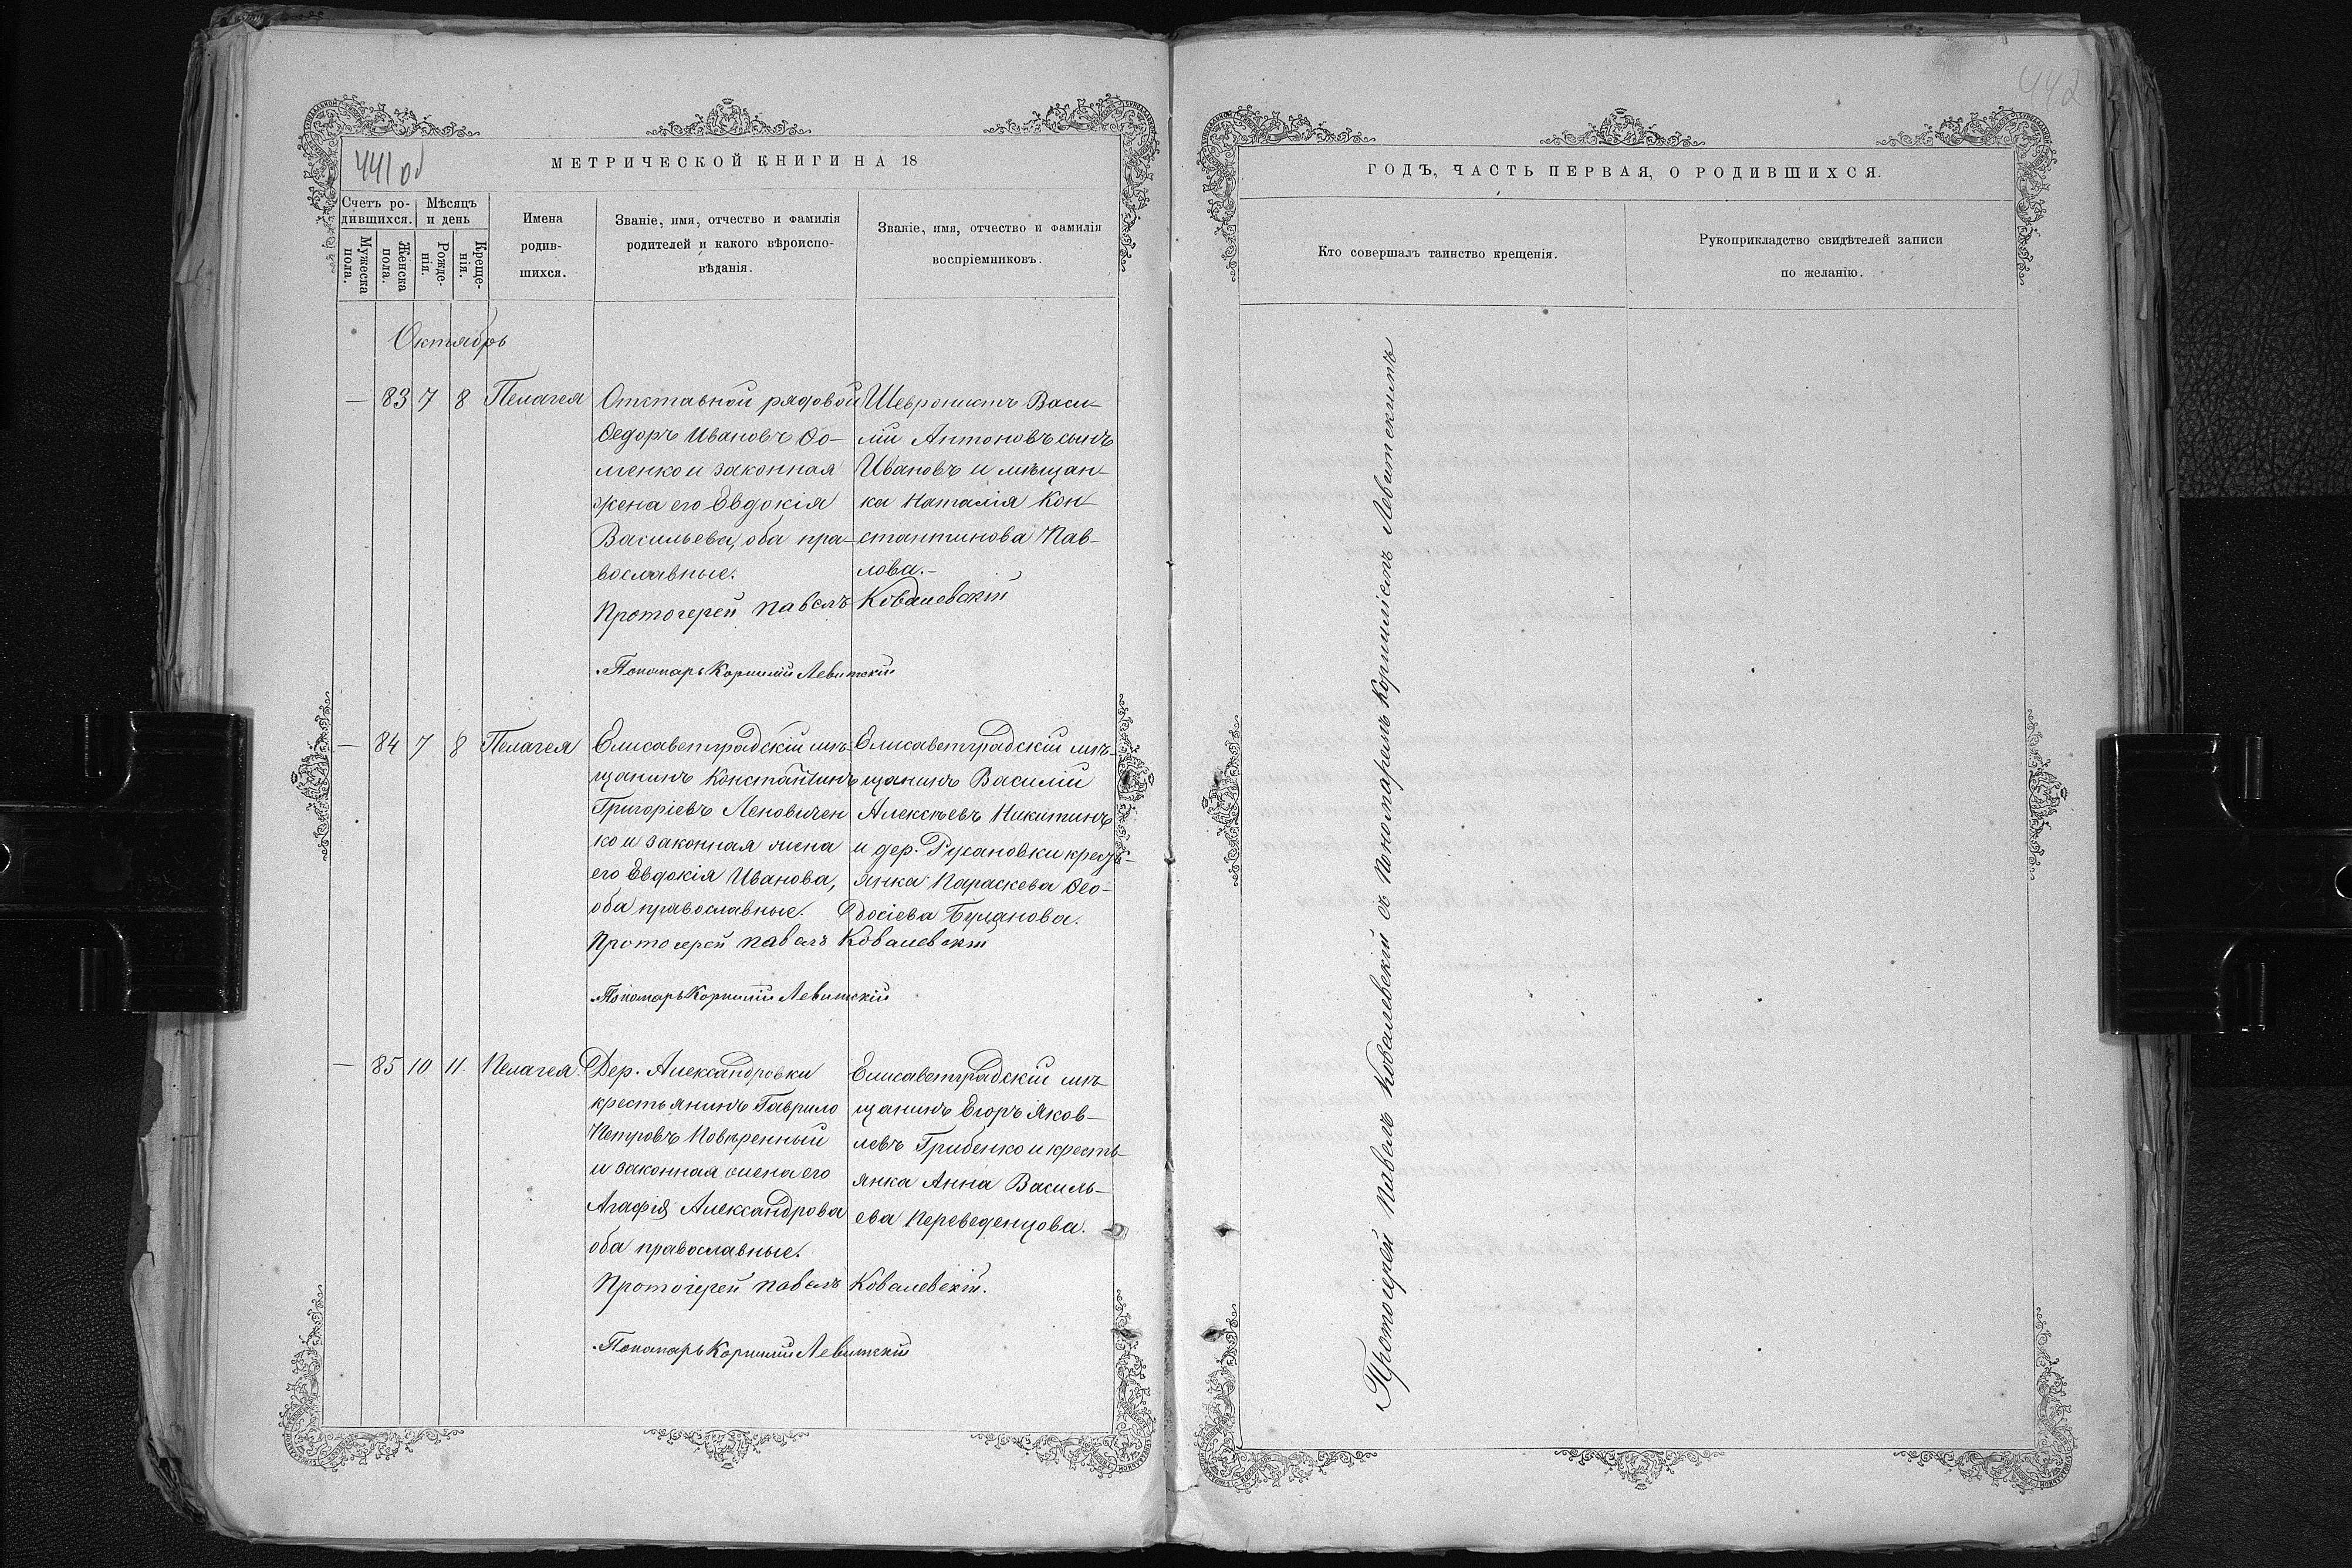 441 об
МЕТРИЧЕСКОЙ КНИГИ НА 18
Счетъ ро-
дившихся.
Мѣсяцъ
и день
Мужеска
пола.
Женска
пола.
Рожде-
нія.
Креще-
нія.
Имена
родив-
шихся.
Званіе, имя, отчество и фамилія
родителей и какого вѣроиспо-
вѣданія.
Званіе, имя, отчество и фамилія
воспріемниковъ.
Октябрь
— 83 7 8 Пелагея
Отставной рядовой
Ѳедоръ Ивановъ Ѳо-
менко и законная
жена его Евдокія
Васильева, оба пра-
вославные.
Шевронистъ Васи-
лій Антоновъ сынъ
Ивановъ и мѣщан-
ка Наталія Кон-
стантинова Пав-
лова.-
Протоіерей Павелъ Ковалевскій
Пономарь Корнилій Левитскій
— 84 7 8 Пелагея
Елисаветградскій мѣ-
щанинъ Константинъ
Григоріевъ Леновичен
ко и законная жена
его Евдокія Иванова,
оба православные.
Елисаветградскій мѣ-
щанинъ Василій
Алексѣевъ Никитинъ
и дер. Русановки крест-
янка Параскева Ѳео-
досіева Буцанова.
Протоіерей Павелъ Ковалевскій
Пономарь Корнилій Левитскій
— 85 10 11. Пелагея.
Дер. Александровки
крестьянинъ Гаврило
Петровъ Повѣренный
и законная жена его
Агафія Александрова
оба православные.
Елисаветградскій мѣ-
щанинъ Егоръ Яков-
левъ Грибенко и кресть-
янка Анна Василь-
ева Переведенцова.
Протоіерей Павелъ Ковалевскій.
Пономарь Корнилій Левитскій
442
ГОДЪ, ЧАСТЬ ПЕРВАЯ, О РОДИВШИХСЯ.
Кто совершалъ таинство крещенія.
Рукоприкладство свидѣтелей записи
по желанію.
Протоіерей Павелъ Ковалевскій съ Пономаремъ Корниліемъ Левитскимъ